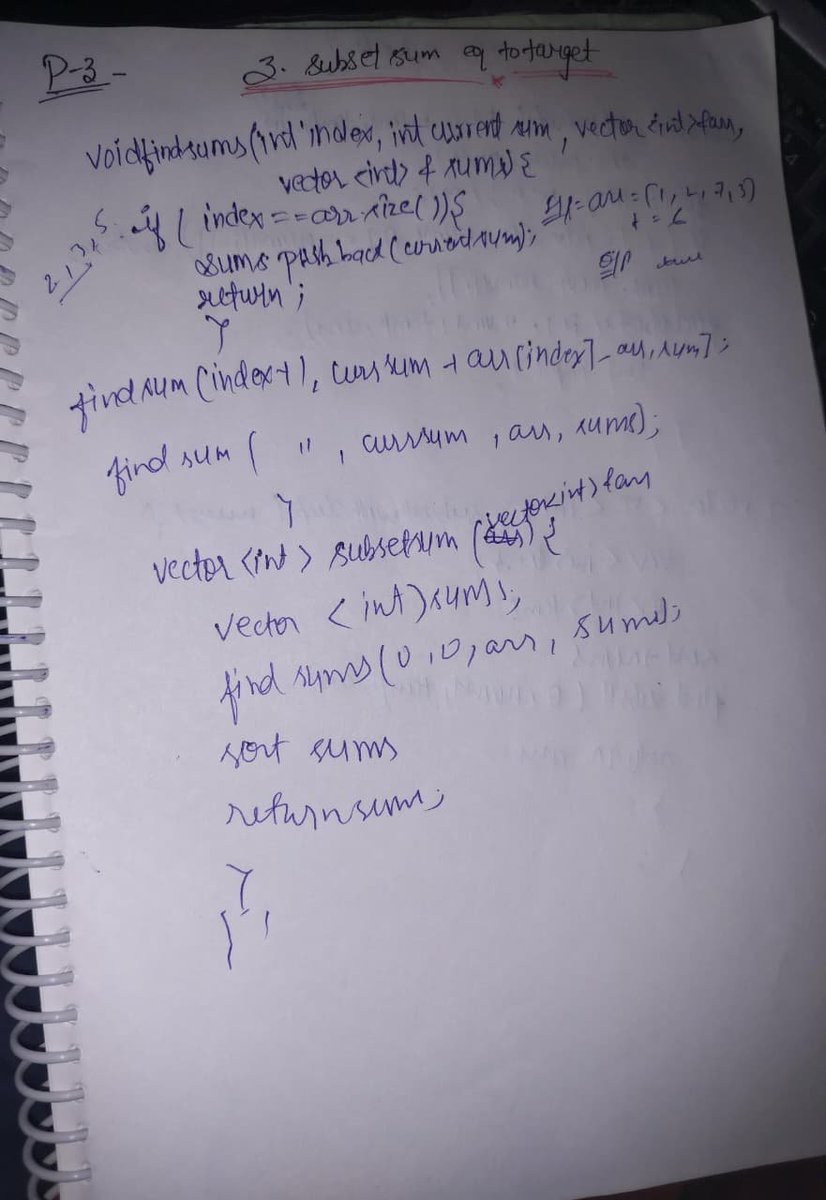 P-3 -
3. subset sum eq to target
void findsums(int index, int current sum, vector<int>&arr,
vector <int> & sums) {
if ( index==arr.size()){
I/P= arr = [1, 2, 7, 3]
t = 6
2, 1, 3, 5
sums push back (current sum);
O/P
return ;
}
find sum (index+1, curr sum + arr[index], arr, sum];
find sum ( " , currsum , arr, sums);
}
vector<int>&arr
vector <int> subsetsum ( ) {
vector <int> sums;
find sums(0,0,arr, sums);
sort sums
return sums;
}
};